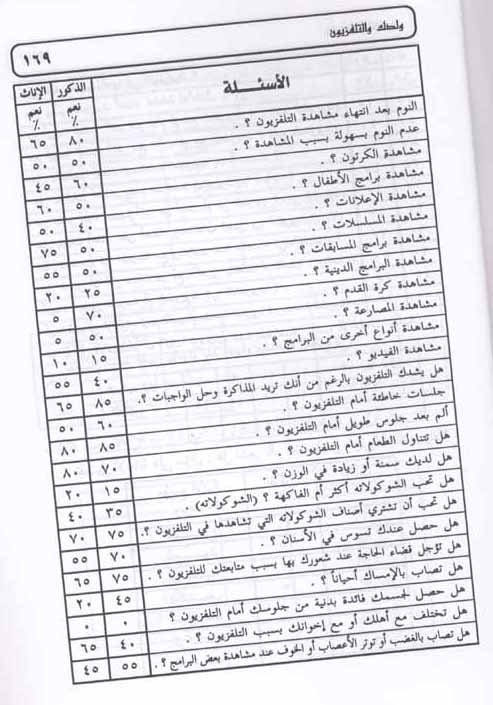 ولدك والتلفزيون
١٦٩
الأسئلة الذكور الإناث
نعم نعم
٪ ٪
النوم بعد انتهاء مشاهدة التلفزيون ؟ . ٨٠ ٦٥
عدم النوم بسهولة بسبب المشاهدة ؟ . ٥٠ ٥٠
مشاهدة الكرتون ؟ . ٦٠ ٤٥
مشاهدة برامج الأطفال ؟ . ٥٠ ٦٠
مشاهدة الإعلانات ؟ . ٤٠ ٥٠
مشاهدة المسلسلات ؟ . ٥٠ ٧٥
مشاهدة برامج المسابقات ؟ . ٥٠ ٥٥
مشاهدة البرامج الدينية ؟ . ٢٥ ٢٠
مشاهدة كرة القدم ؟ . ٧٠ ٥
مشاهدة المصارعة ؟ . ٥٠ ٥
مشاهدة أنواع أخرى من البرامج ؟ . ١٥ ١٠
مشاهدة الفيديو ؟ . ٤٠ ٥٥
هل يشدك التلفزيون بالرغم من أنك تريد المذاكرة وحل الواجبات ؟. ٨٥ ٦٥
جلسات خاطئة أمام التلفزيون ؟ . ٦٠ ٥٠
ألم بعد جلوس طويل أمام التلفزيون ؟ . ٨٥ ٨٠
هل تتناول الطعام أمام التلفزيون ؟ . ٧٠ ٨٠
هل لديك سمنة أو زيادة في الوزن ؟ . ١٥ ٢٠
هل تحب الشوكولاته أكثر أم الفاكهة ؟ (الشوكولاته) . ٣٥ ٤٠
هل تحب أن تشتري أصناف الشوكولاته التي تشاهدها في التلفزيون ؟. ٧٥ ٧٠
هل حصل عندك تسوس في الأسنان ؟ . ٧٠ ٥٥
هل تؤجل قضاء الحاجة عند شعورك بها بسبب متابعتك للتلفزيون ؟ . ٧٥ ٦٥
هل تصاب بالإمساك أحياناً ؟ . ٤٥ ٢٠
هل حصل لجسمك فائدة بدنية من جلوسك أمام التلفزيون ؟ ٠ ٠
هل تختلف مع أهلك أو مع إخوانك بسبب التلفزيون ؟ . ٤٠ ٦٥
هل تصاب بالغضب أو توتر الأعصاب أو الخوف عند مشاهدة بعض البرامج ؟ . ٥٥ ٤٥